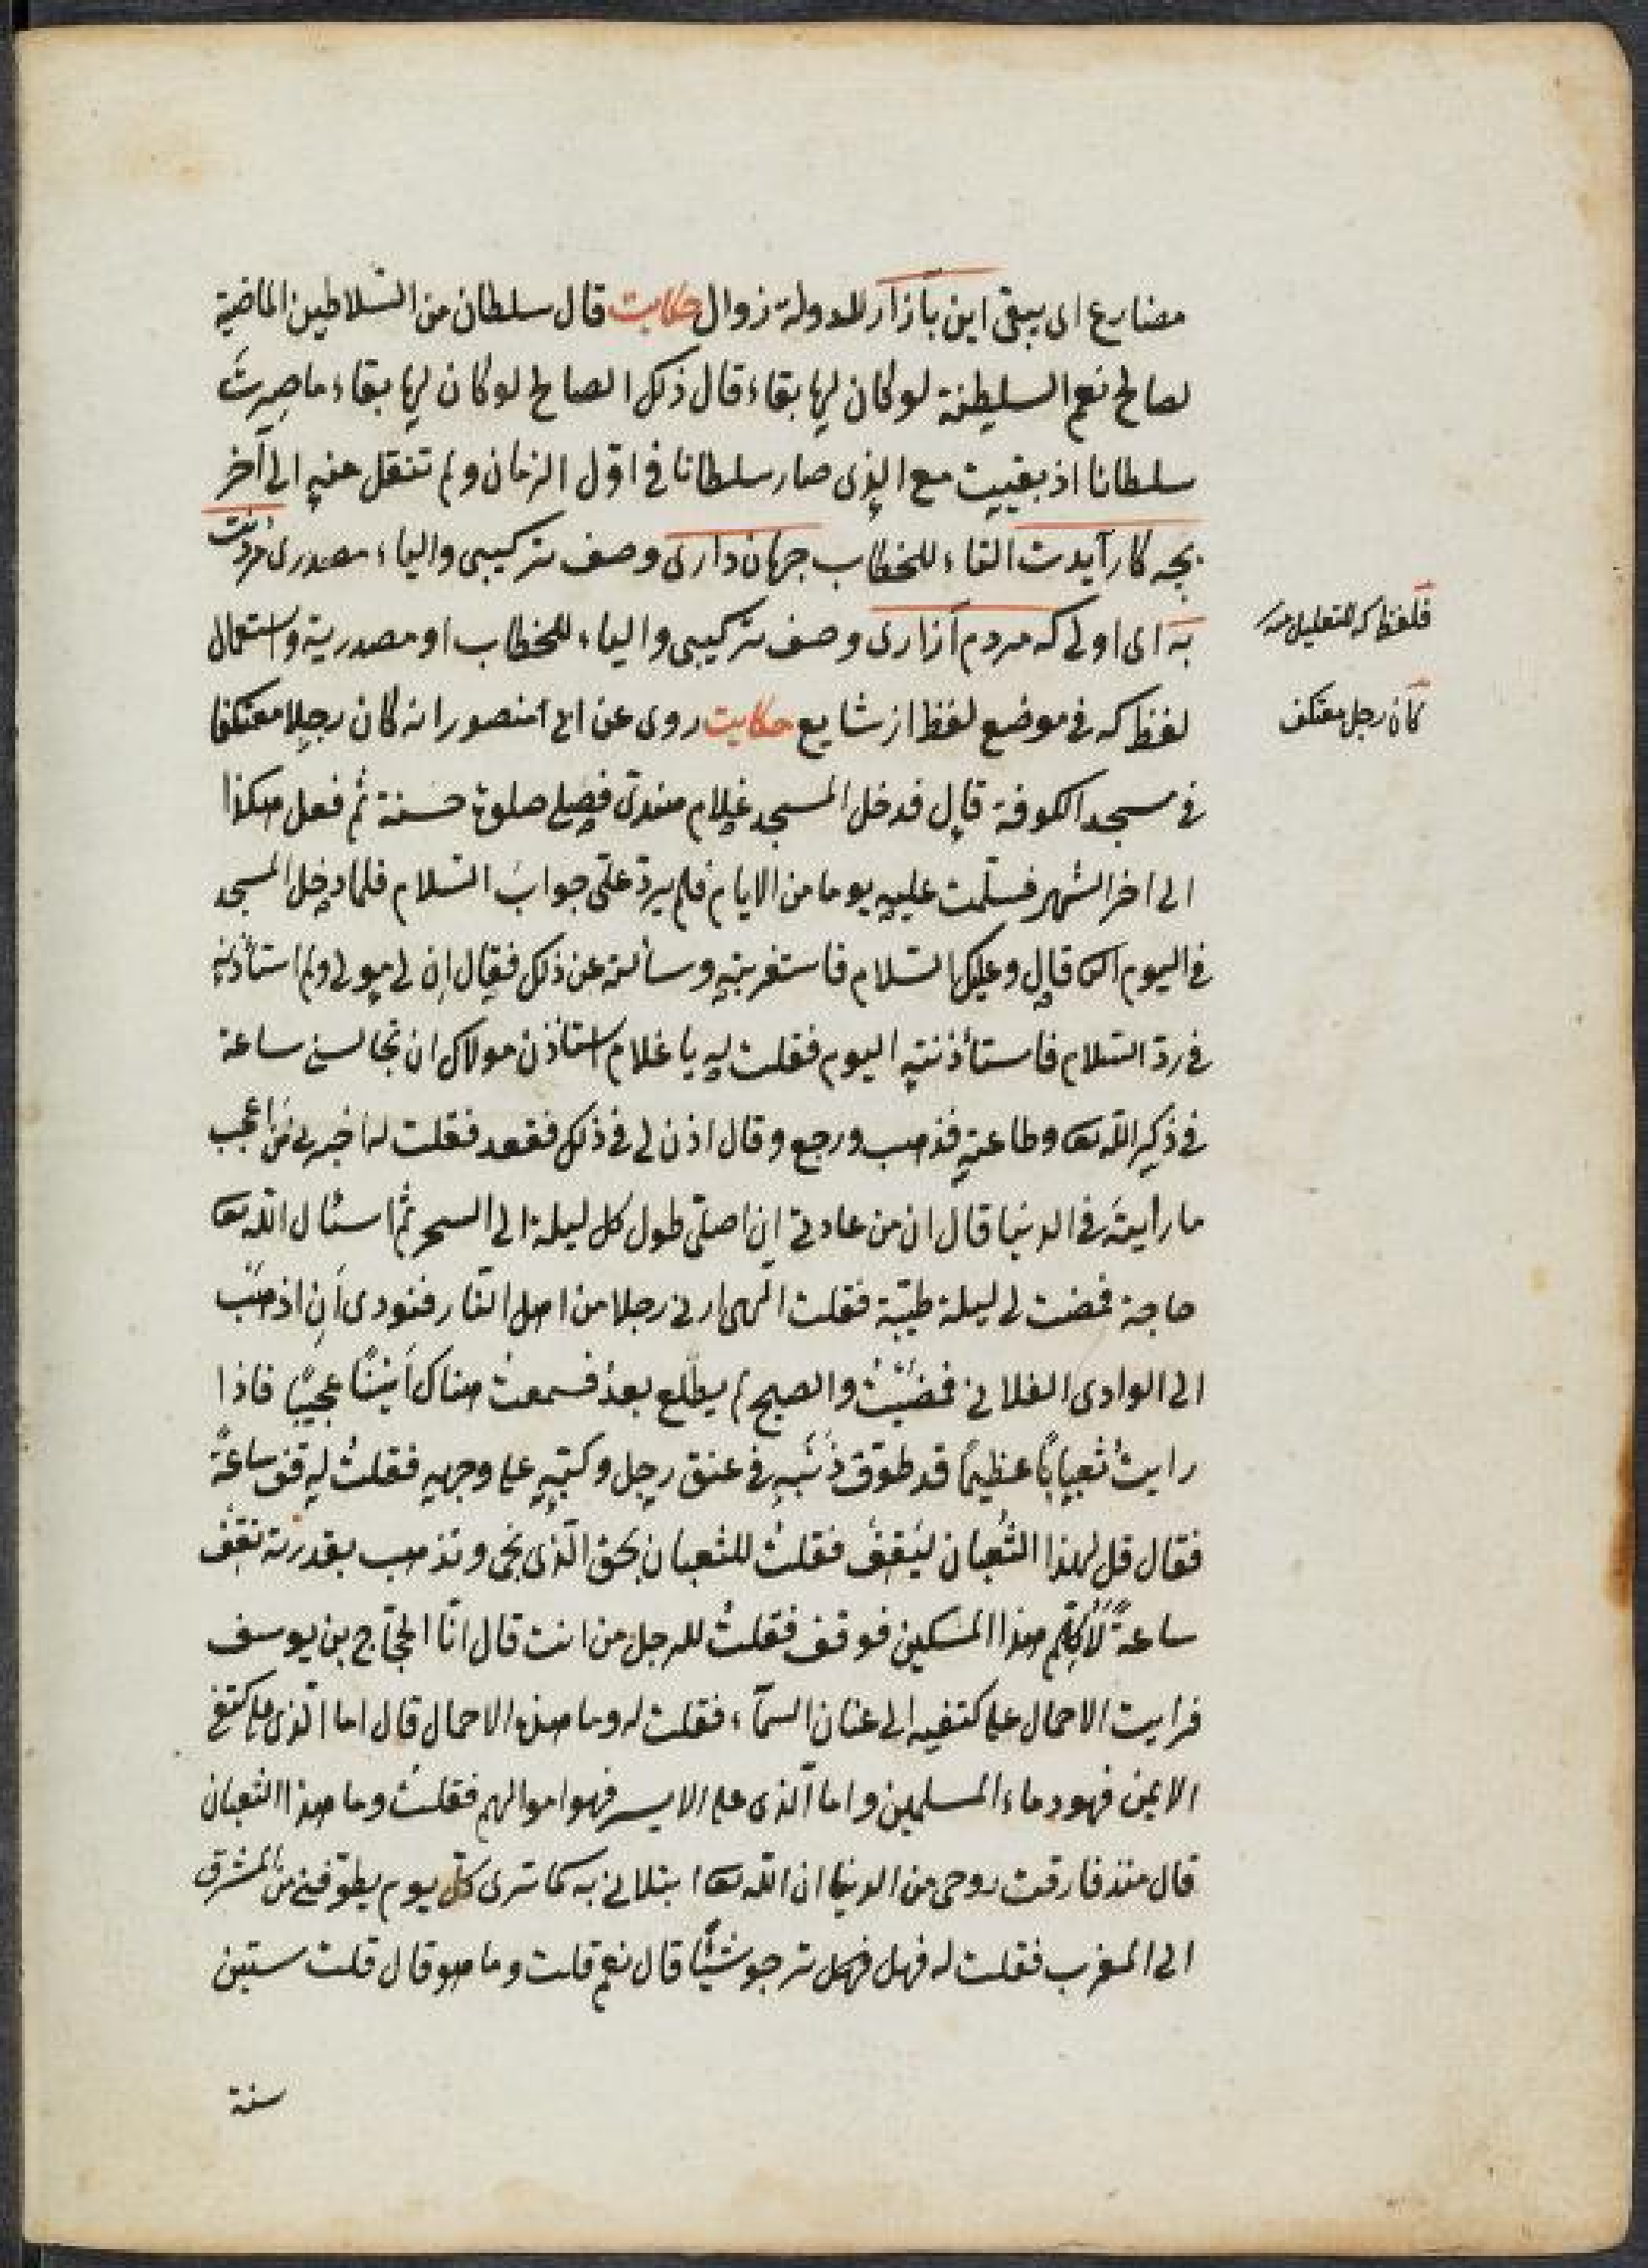 مضارع اى يبقى اين بازار للدولة زوال حكايت قال سلطان من السّلاطين الماضية
لصالح نعم السلطنة لو كان لها بقاء قال ذلك الصالح لو كان لها بقاء ما صِرتَ
سلطانا اذ بقيت مع الذى صار سلطانا فى اوّل الزمان ولم تنقل عنه الى آخر
بچه كار آيدت التاء للخطاب جهان دارى وصف تركيبى والياء مصدرى مردنت
به اى اولى كه مردم آزارى وصف تركيبى والياء للخطاب او مصدرية واستعمال
لفظ كه فى موضع لفظ از شايع حكايت روى عن ابى منصور انه كان رجلا معتكفا
فى مسجد الكوفة قال فدخل المسجد غلام فصلى صلوة حسنة ثم فعل هكذا
الى اخر الشهر فسلّمت عليه يوما من الايام فلم يردّ علىّ جوابَ السّلام فلما دخل المسجد
فى اليوم قال وعليك السّلام فاستغربته وسألته عن ذلك فقال ان لى مولى ولم استأذنه
فى ردّ السّلام فاستأذنته اليوم فقلت له يا غلام استأذن مولاك ان تجالسنى ساعة
فى ذكر الله تعا وطاعته فذهب ورجع وقال اذن لى فى ذلك فقعد فقلت له اخبرنى من اعجب
ما رأيتَه فى الدنيا قال ان من عادتى ان اصلّى طول كل ليلة الى السحر ثم اسئال الله تعا
حاجة فمضت لى ليلة طيّبة فقلت الهى ارنى رجلا من اهل النّار فنودى أن اذهب
الى الوادى الفلانى فمضيْتُ والصبح لم يطلع بعدُ فسمعت هناك أنينًا عجيبًا فاذا
رايتُ ثعبانًا عظيمًا قد طوّق ذَنَبه فى عنق رجل وكبّه على وجهه فقلتُ له قف ساعةً
فقال قل لهذا الثُعبان ليَقفْ فقلتُ للثعبان بحق الّذى تجى وتذهب بقدرته تقف
ساعةً لأُكلّم هذا المسكين فوقف فقلتُ للرجل من انت قال انا الحجّاج بن يوسف
فرايت الاحمال على كتفيه الى عنان السّمآء فقلت له وما هذه الاحمال قال اما الّذى على كتفى
الايمن فهو دماء المسلمين واما الّذى على الايسر فهو اموالهم فقلتُ وما هذا الثعبان
قال منذ فارقت روحى من الدنيا ان الله تعا ابتلانى به كما ترى كلّ يوم يطوّفنى من المشرق
الى المغرب فقلت له فهل فهل ترجو شيئًا قال نعم قلت وما هو قال قلت ستين
سنة
فلفظ كه للتعليل منه
كان رجل معتكف